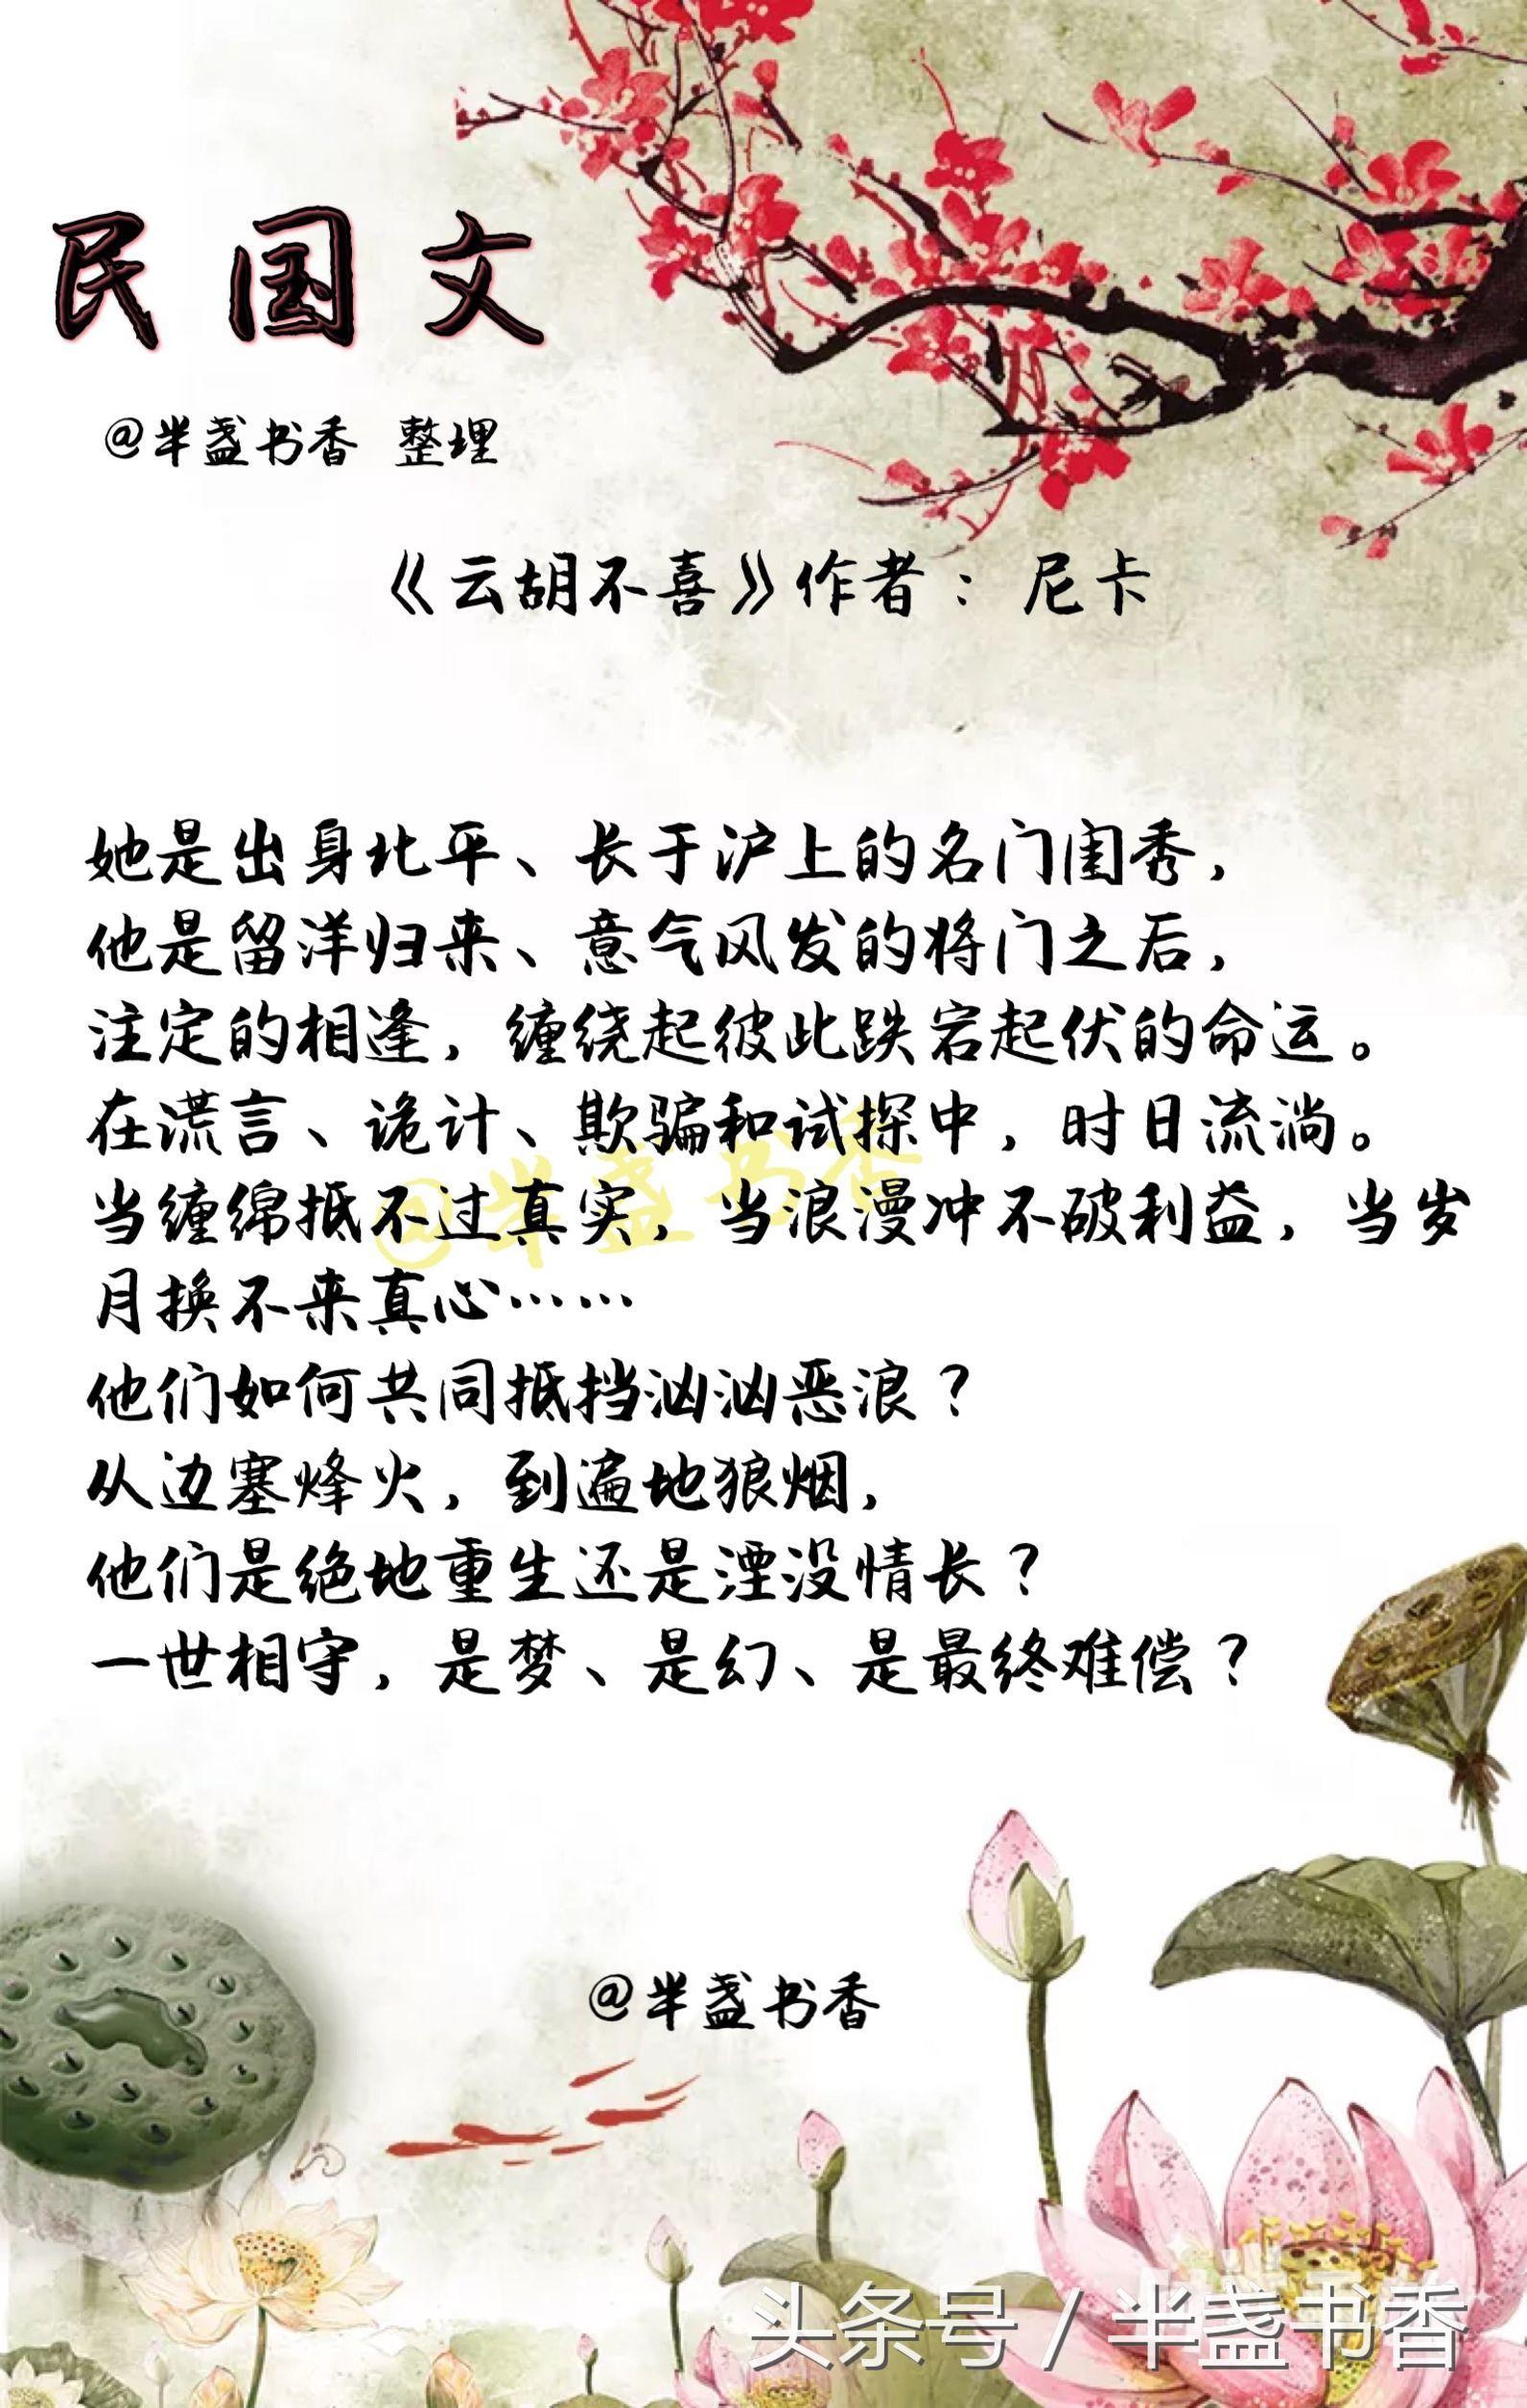 民国文
@半盏书香 整理
《云胡不喜》作者：尼卡
她是出身北平、长于沪上的名门闺秀，
他是留洋归来、意气风发的将门之后，
注定的相逢，缠绕起彼此跌宕起伏的命运。
在谎言、诡计、欺骗和试探中，时日流淌。
@半盏书香
当缠绵抵不过真实，当浪漫冲不破利益，当岁
月换不来真心……
他们如何共同抵挡汹汹恶浪？
从边塞烽火，到遍地狼烟，
他们是绝地重生还是湮没情长？
一世相守，是梦、是幻、是最终难偿？
@半盏书香
头条号/半盏书香